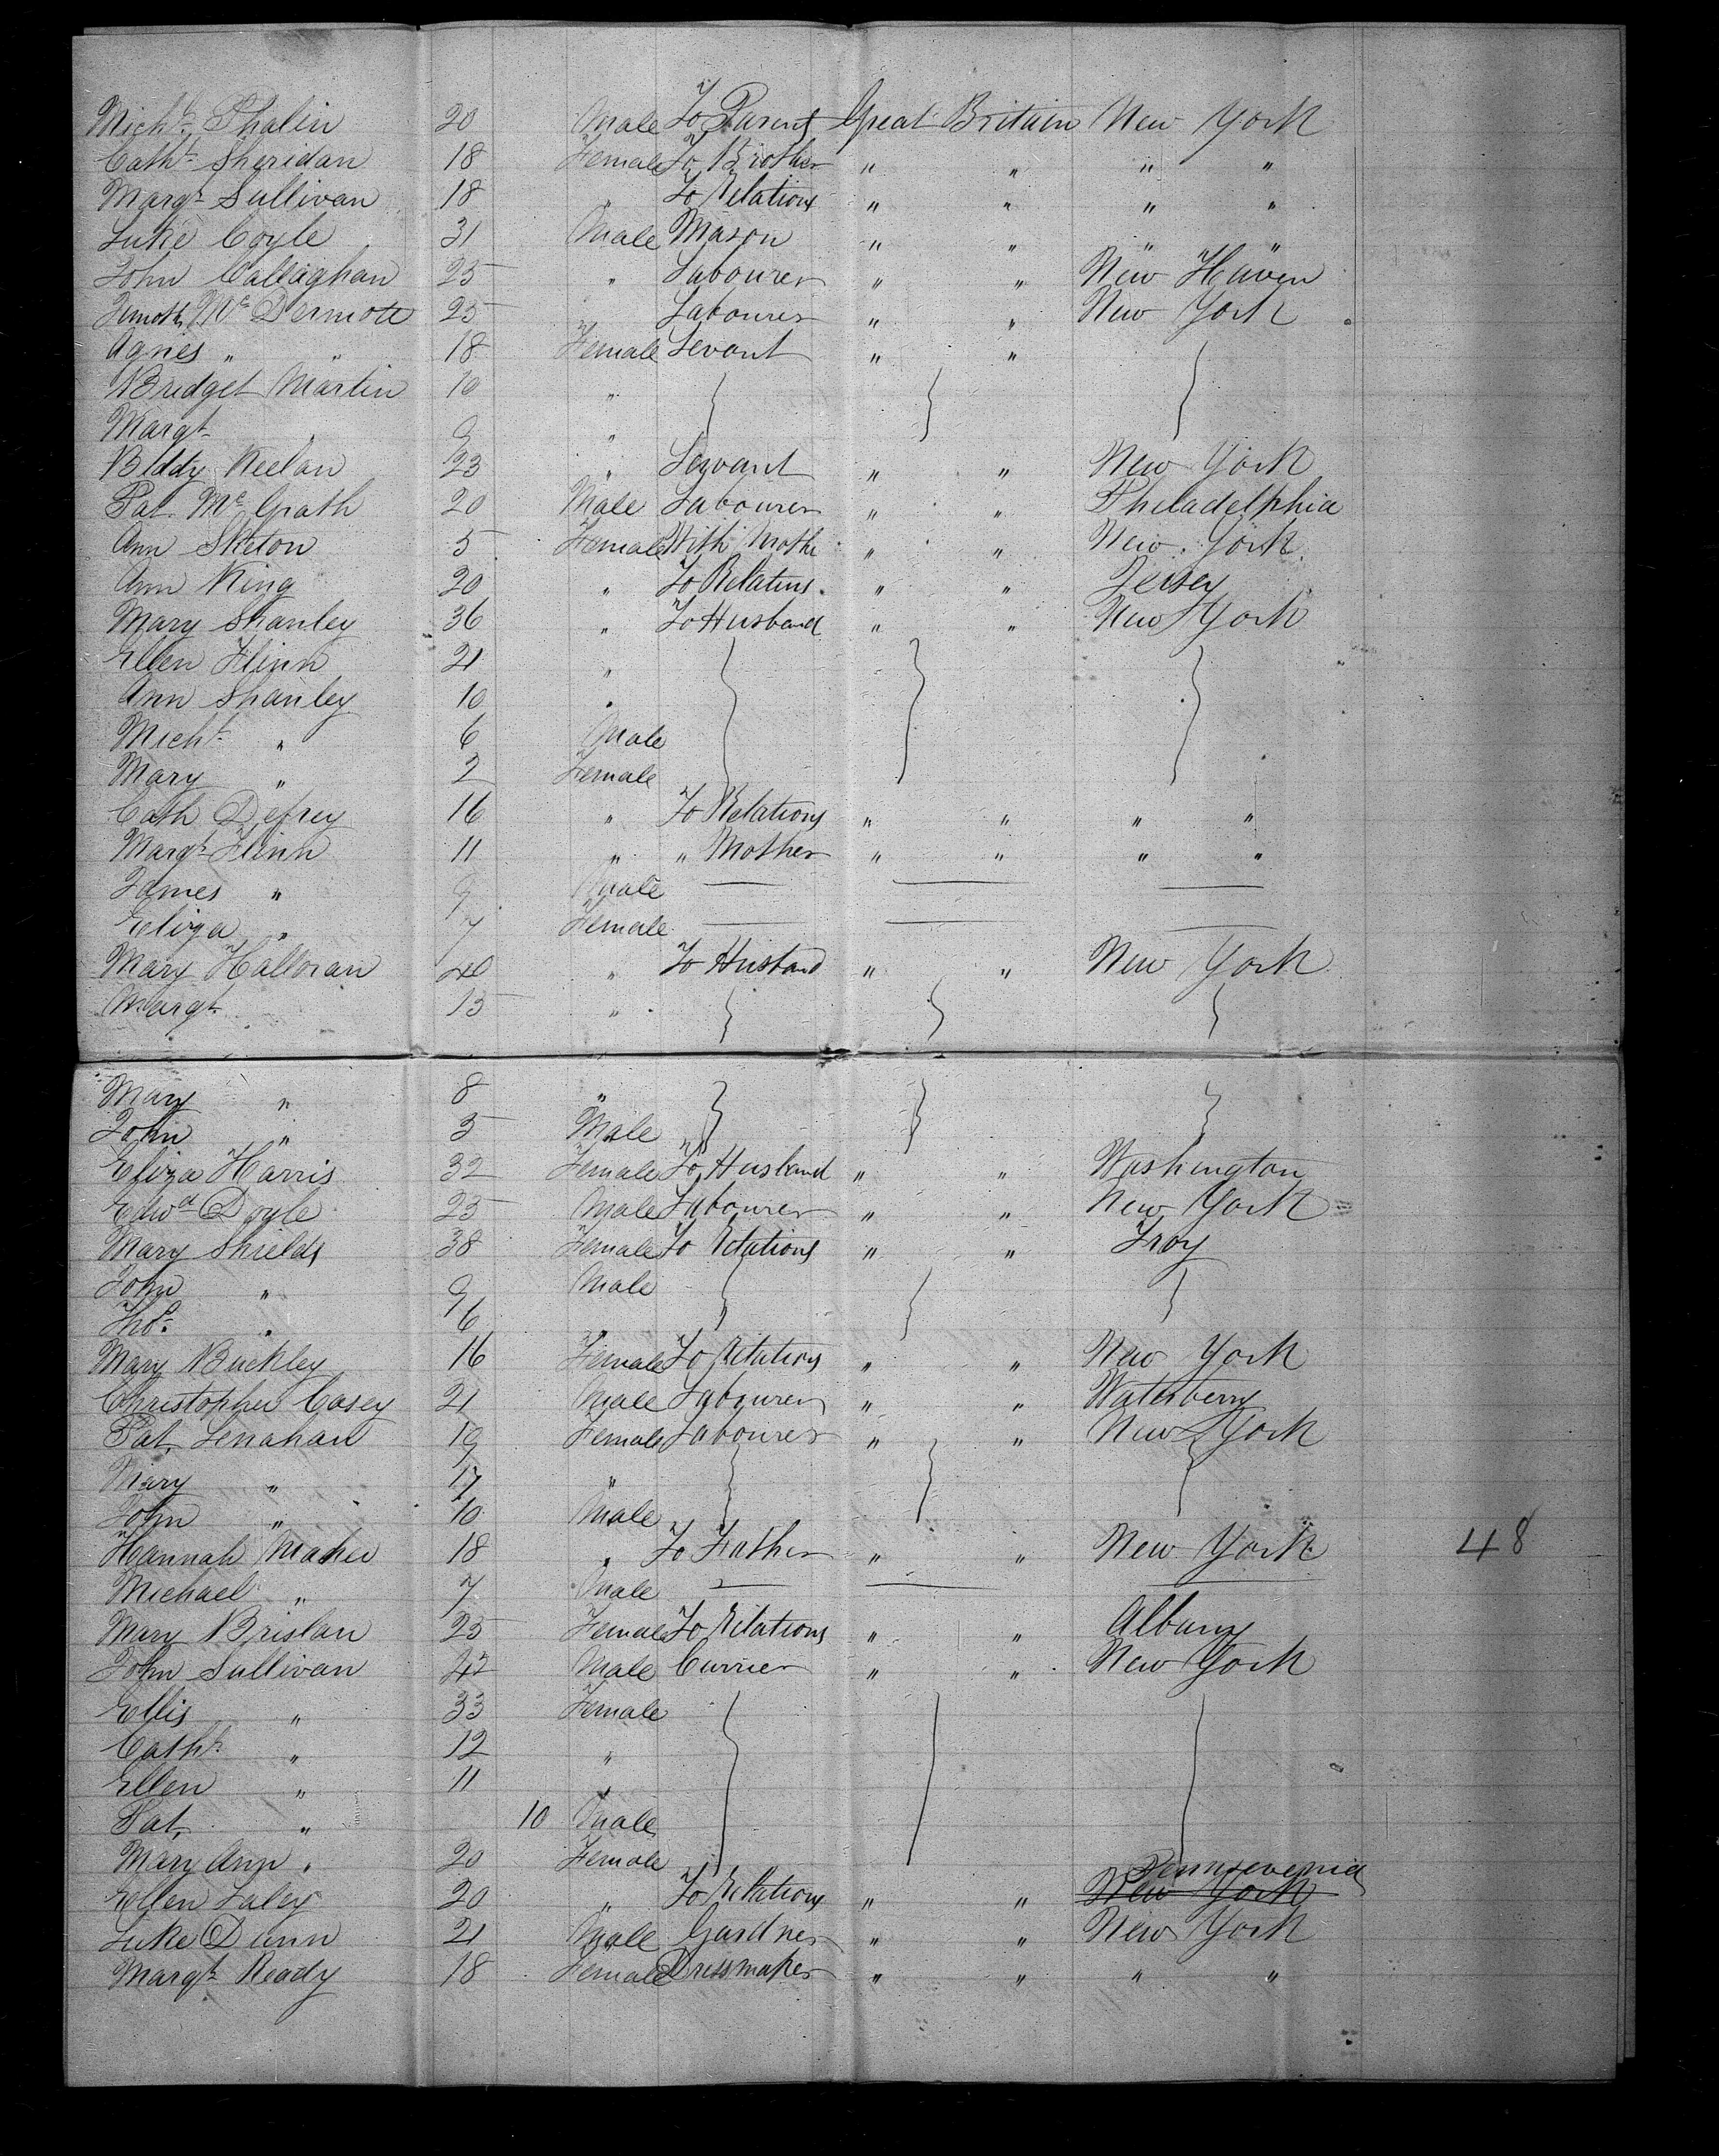 Michl. Phalin 20 Male To Parents Great Britain New York
Cath. Sheridan 18 Female To Brother " " " "
Margt. Sullivan 18 " To Relations " " " "
Luke Coyle 31 Male Mason " " " "
John Callaghan 25 " Labourer " " New Haven
Timoth Mc Dermott 25 " Labourer " " New York
Agnes " " 18 Female Sevant " "
Bridget Martin 10 "
Margt. " 9 "
Biddy Keelan 23 " Servant " " New York
Pat. Mc Grath 20 Male Labourer " " Philadelphia
Ann Sketon 5 Female With Mothe " " New York
Ann King 20 " To Relatins " " Jersey
Mary Shanley 36 " To Husband " " New York
Ellen Flinn 21 "
Ann Shanley 10 "
Michl. " 6 Male
Mary " 2 Female
Cath Defrey 16 " To Relations " " " "
Margt. Flinn 11 " " Mother " " " "
James " 9 Male
Eliza " 7 Female
Mary Halloran 40 " To Husband " " New York
Margt. 15 "
Mary " 8 "
John " 5 Male
Eliza Harris 32 Female To Husband " " Washington
Edwd. Doyle 25 Male Labourer " " New York
Mary Shields 38 Female To Relations " " Troy
John " 9 Male
Thos. " 6 "
Mary Buckley 16 Female To Relations " " New York
Christopher Casey 21 Male Labourer " " Waterberry
Pat. Lenahan 19 Female Labourer " " New York
Mary " 17 "
John " 10 Male
Hannah Maher 18 " To Father " " New York 48
Michael " 7 Male
Mary Brislan 25 Female To Relations " " Albany
John Sullivan 42 Male Currier " " New York
Ellis " 33 Female
Cath. " 12 "
Ellen " 11 "
Pat. " 10 Male
Mary Ann " 20 Female
Ellen Laley 20 " To Relations " " New York
Luke Dunn 21 Male Gardner " " New York
Margt. Ready 18 Female Dressmaker " " " "